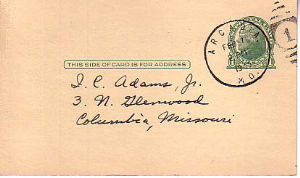 THIS SIDE OF CARD IS FOR ADDRESS
1
I. C. Adams, Jr.
3. N. Glenwood
Columbia, Missouri